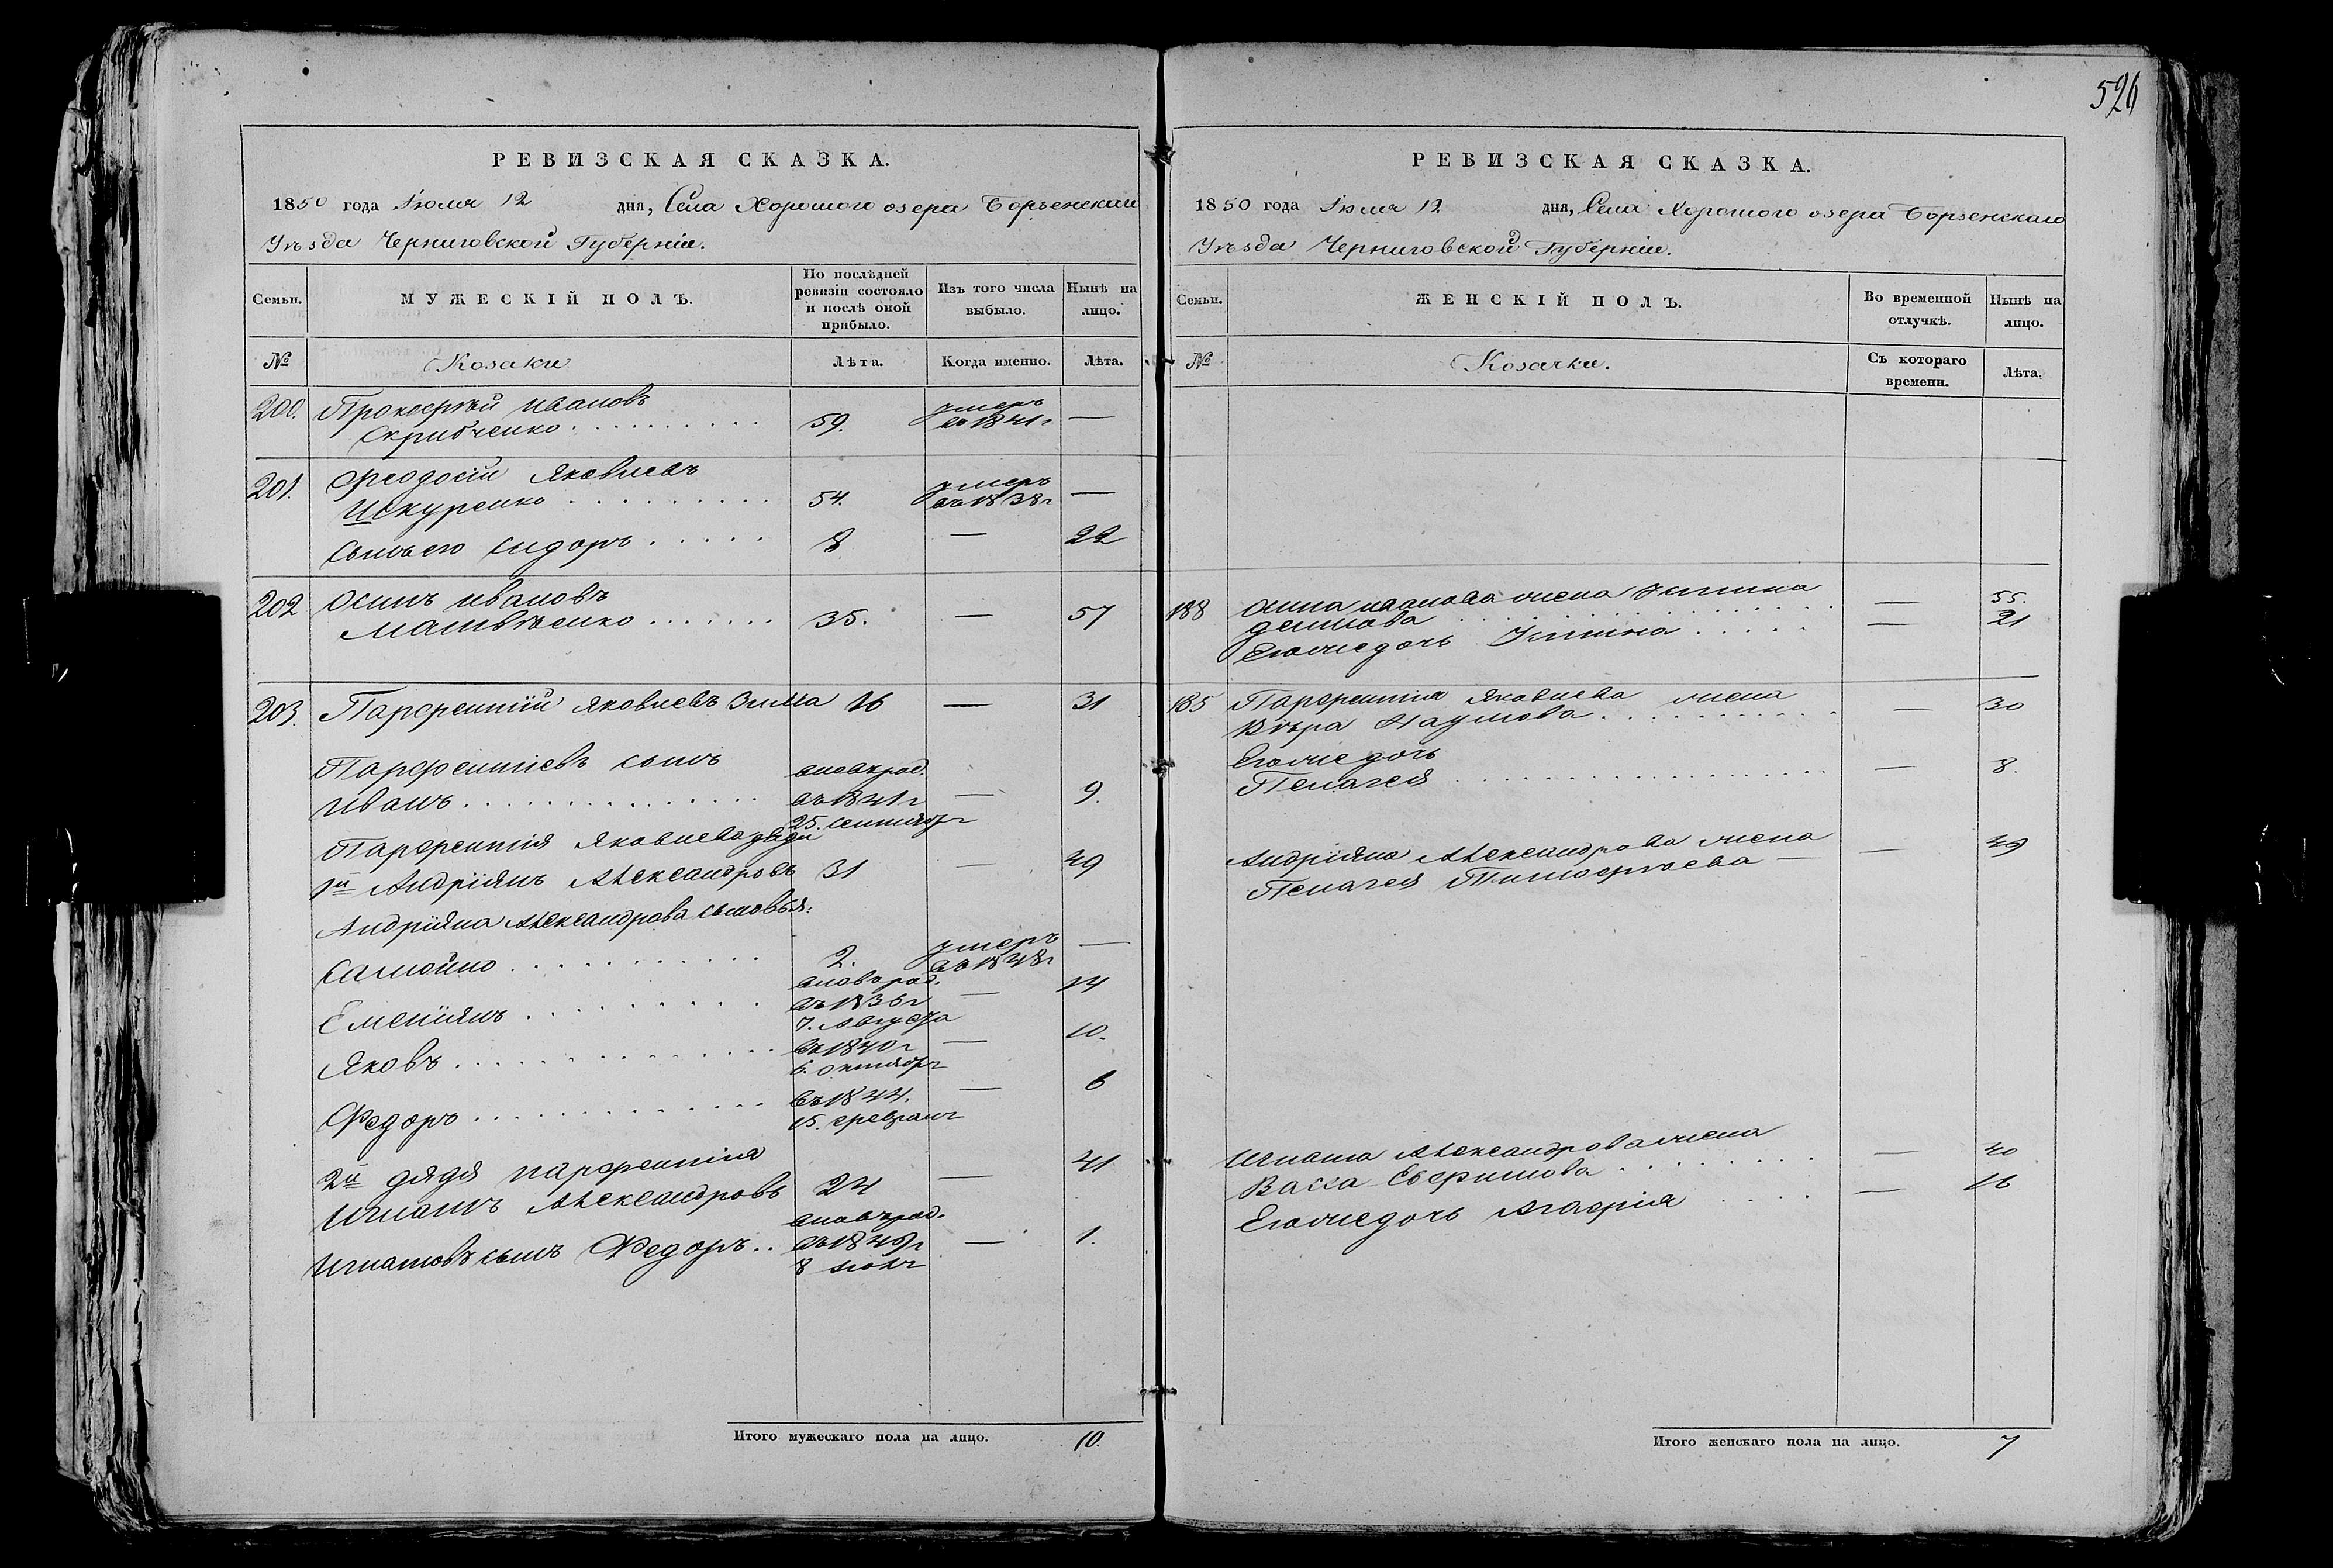 526
РЕВИЗСКАЯ СКАЗКА.
1850 года Іюля 12 дня, Села Хорошого озера Борзенскаго
Уѣзда Черниговской Губерніи.
Семьи. МУЖЕСКІЙ ПОЛЪ. По послѣдней ревизіи состояло и послѣ оной прибыло. Изъ того числа выбыло. Нынѣ на лицо.
№ Козаки Лѣта. Когда именно. Лѣта.
200. Прокофѣй Ивановъ умеръ
Скрибченко 59. въ 1841г —
201. Феодосій Яковлевъ умеръ
Шкуренко 54. въ 1838г —
Сынъ его Сидоръ 8 — 22
202 Осипъ Ивановъ
Матвѣенко 35. — 57
203. Парфентій Яковлевъ Зима 16 — 31
Парфентіевъ сынъ вновьрод.
Иванъ въ 1841г — 9.
25. Сентябр
Парфентія Яковлева дяди
1й Андріянъ Александровъ 31 — 49
Андріяна Александрова сыновья:
Самойло 2. умеръ въ 1848г —
вновьрод.
Емеліянъ въ 1836г — 14
7. Августа
Яковъ въ 1840г — 10.
6. октябр
Федоръ въ 1844. — 6
15. февраля
2й дядя Парфентія
Игнатъ Александровъ 24 — 41
вновьрод.
Игнатовъ сынъ Федоръ въ 1849г — 1.
8 июля
Итого мужескаго пола на лицо. 10.
РЕВИЗСКАЯ СКАЗКА.
1850 года Іюля 12 дня, Села Хорошого озера Борзенскаго
Уѣзда Черниговской Губерніи.
Семьи. ЖЕНСКІЙ ПОЛЪ. Во временной отлучкѣ. Нынѣ на лицо.
№ Козачки. Съ котораго времени. Лѣта.
188 жена Устина — 55.
Его же дочь Устина — 21
185 Парфентія Яковлева жена
Вѣра Наумова — 30
Его же дочь
Пелагея — 8.
Андріяна Александрова жена
Пелагея Тимофѣева — 49
Игната Александрова жена
Васса Ефримова — 40
Его же дочь Агафія — 16
Итого женскаго пола на лицо. 7